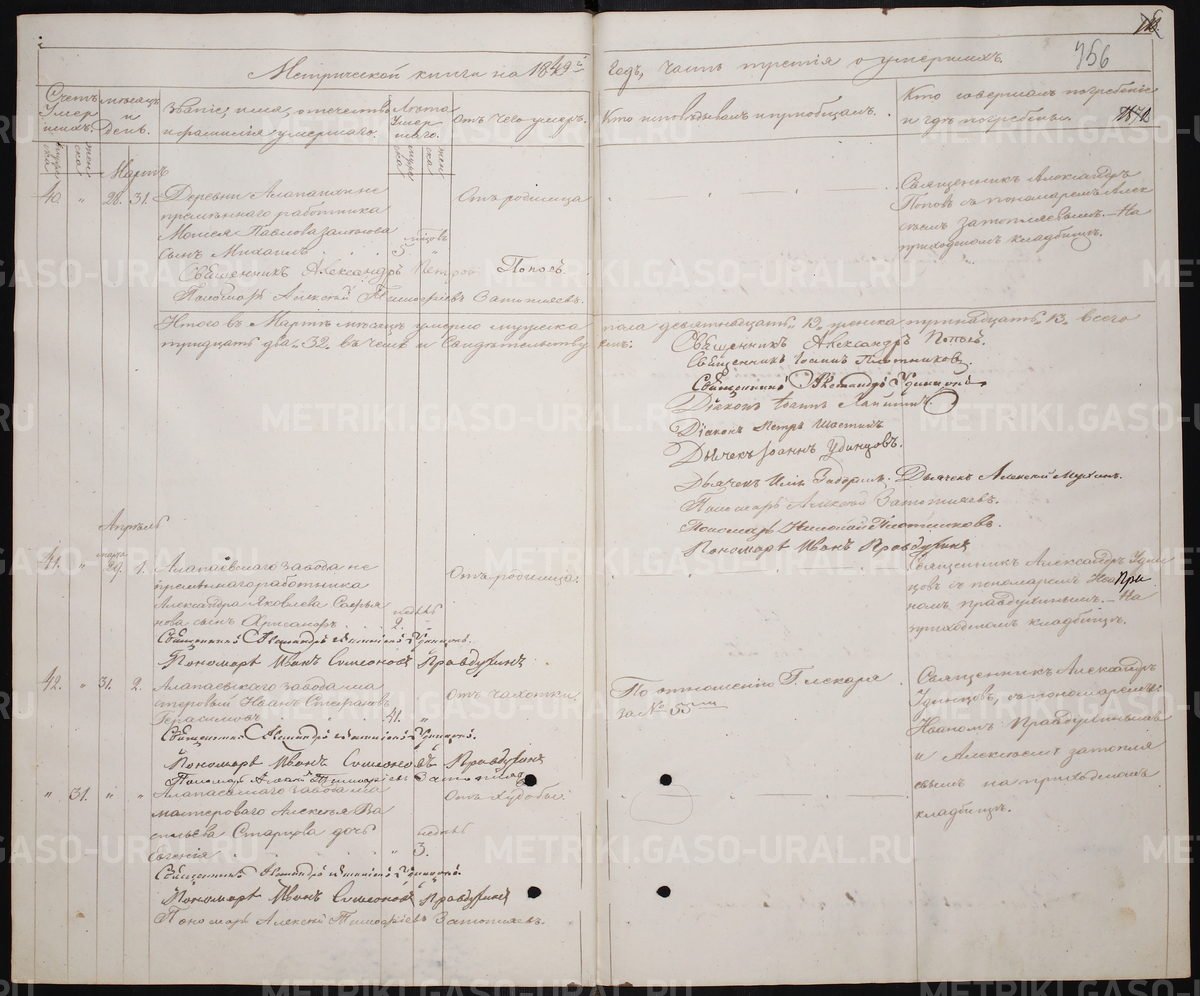 456
Метрической книги на 1849й
годъ, часть третiя о умершихъ.
Счетъ умершихъ.
мужеска
женска
Мѣсяцъ и день.
Званiе, имя, отечество и фамилiя умершаго.
Лѣта умершаго.
мужеска
женска
Отъ чего умеръ.
Кто исповѣдывалъ и прiобщалъ.
Кто совершалъ погребенiе и гдѣ погребены.
Мартъ
40. " 28. 31. Деревни Алапаихи не
премѣннаго работника
Моисея Павлова
сынъ Михаилъ
5.
Отъ родимца
Священникъ Александръ
Поповъ съ пономаремъ Алек
сѣемъ Затопляевымъ. На
приходскомъ кладбищѣ.
Священникъ Александръ Петровъ Поповъ.
Пономарь Алексѣй Тимофѣевъ Затопляевъ.
Итого въ Мартѣ мѣсяцѣ умерло мужеска пола девятнадцать 19, женска тринадцать 13, всего
тридцать два 32, въ чемъ и свидѣтельствуемъ:
Священникъ Александръ Поповъ.
Священникъ Iоаннъ Плотниковъ.
Священникъ Александръ Удинцовъ
Дiаконъ Iоаннъ
Дiаконъ Петръ
Дьячекъ Iоаннъ Удинцовъ.
Дьячекъ Дьячекъ Алексѣй Мухинъ.
Пономарь Алексѣй Затопляевъ.
Пономарь Николай Плотниковъ.
Пономарь Иванъ Правдухинъ
Апрѣль
марта
41. " 29. 1. Алапаевскаго завода не
премѣннаго работника
Александра Яковлева Сафья
нова сынъ
недѣль
2.
Отъ родимца.
Священникъ Александръ Удин
цовъ съ пономаремъ
номъ Правдухинымъ. На
приходскомъ кладбищѣ.
Священникъ Александръ Удинцовъ.
Пономарь Иванъ Симеоновъ Правдухинъ
42. " 31. 2. Алапаевскаго завода ма
стеровый Иванъ Стефановъ
Герасимовъ
41. "
Отъ чахотки
По отношенiю Г. лекаря
за № 55мъ
Священникъ Александръ
Удинцовъ, съ пономарями:
Иваномъ Правдухинымъ
и Алексѣемъ Затопля
евымъ на приходскомъ
кладбищѣ.
Священникъ Александръ Удинцовъ.
Пономарь Иванъ Симеоновъ Правдухинъ
Пономарь Алексѣй Тимофѣевъ Затопляевъ
" 31. " " Алапаевскаго завода ма
стероваго Алексѣя Ва
сильева Старцова дочь
Евгенiя
недѣль
" 3.
Отъ худобы.
Священникъ Александръ Удинцовъ.
Пономарь Иванъ Симеоновъ Правдухинъ
Пономарь Алексѣй Тимофѣевъ Затопляевъ.
METRIKI.GASO-URAL.RU